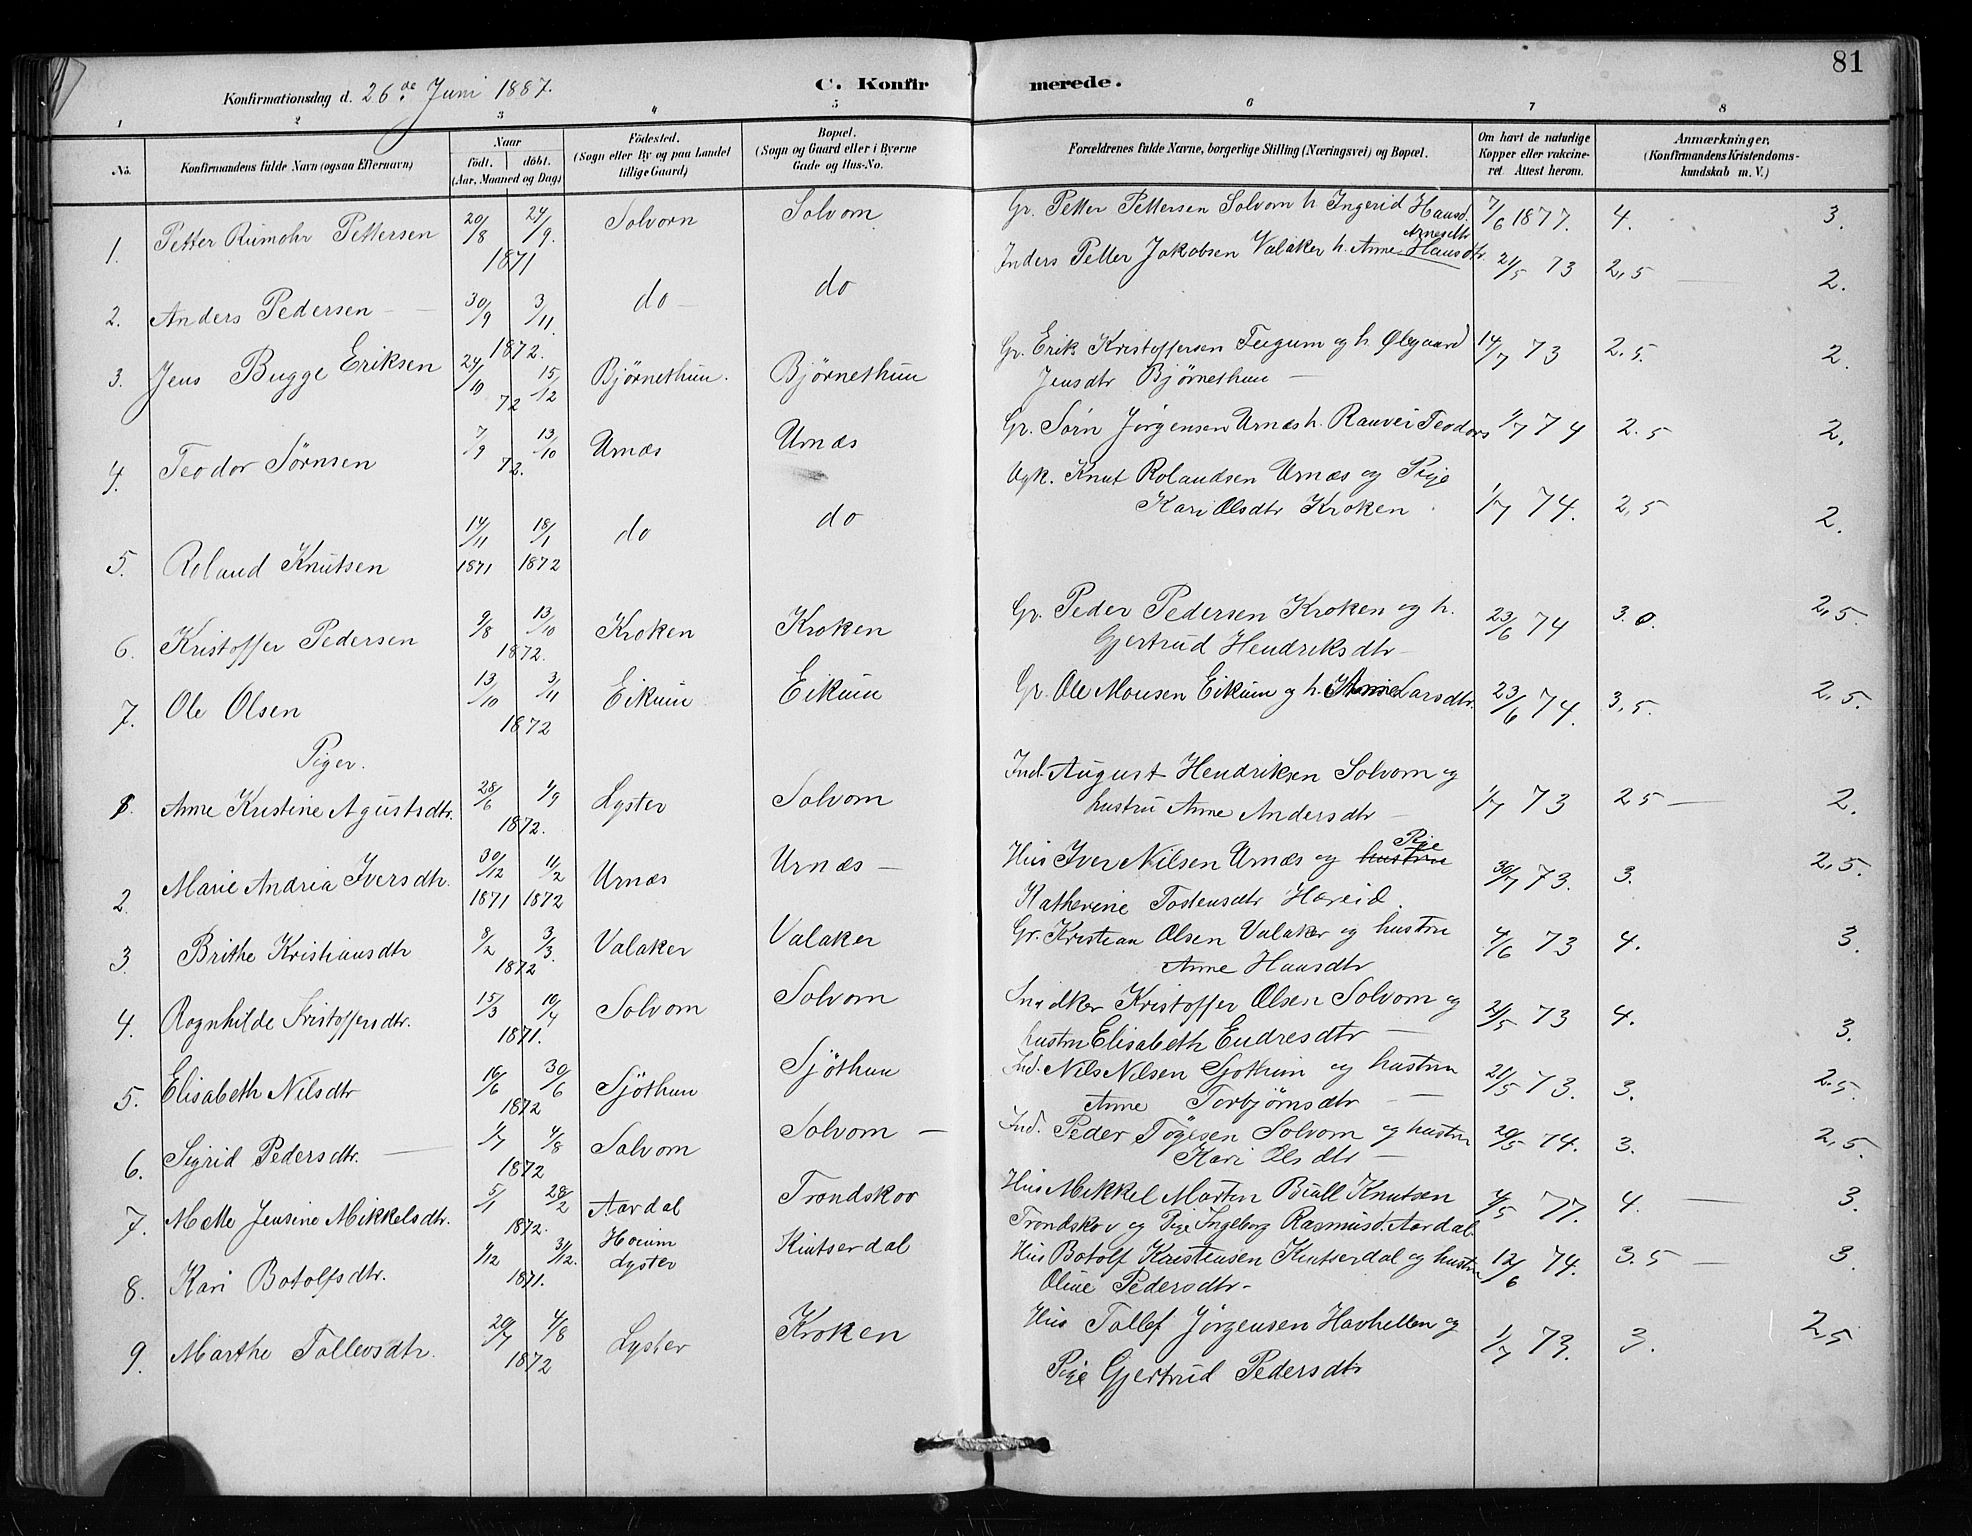 81
Konfirmationsdag d. 26de Juni 1887. C. Konfirmerede.
1 2 3 4 5 6 7 8
No. Konfirmandens fulde Navn (ogsaa Efternavn) Naar født. døbt. (Aar, Maaned og Dag) Fødested. (Sogn eller By og paa Landet tillige Gaard) Bopæl. (Sogn og Gaard eller i Byerne Gade og Hus-No. Forældrenes fulde Navne, borgerlige Stilling (Næringsvei) og Bopæl. Om havt de naturlige Kopper eller vakcineret Attest herom. Anmærkninger, (Konfirmandens Kristendomskundskab m. V.)
1. Petter Rumohr Pettersen 20/8 24/9. 1871 Solvorn Solvorn Gr. Petter Pettersen Solvorn h. Ingerid Hansd. 7/6 1877. 4. 3.
2. Anders Pedersen 30/9 3/11. 1872. do do Inders Petter Jakobsen Valaker h. Anne Hansdtr. Arnesdtr 21/5 73 2,5 2.
3. Jens Bugge Eriksen 24/10 15/12 72 Bjørnethun. Bjørnethun Gr. Erik Kristoffersen Fugum og h. Ølegaard
Jensdtr Bjørnethun 14/7 73 2.5. 2.
4. Teodor Sørnsen 7/9 13/10 72. Urnæs Urnæs Gr. Sørn Jørgensen Urnæs h. Ranvei Teodors 1/7 74 2.5 2.
5. Roland Knutsen 14/11 1871 18/1 1872 do do Ugk. Knut Rolandsen Urnæs og Pige
Kari Olsdtr Kroken 1/7 74. 2,5 2.
6. Kristoffer Pedersen 9/8 13/10 1872. Kroken Kroken Gr. Peder Pedersen Kroken og h.
Gjertrud Hendriksdtr 23/6 74 3.0. 2,5.
7. Ole Olsen 13/10 3/11 1872 Eikum Eikum Gr. Ole Monsen Eikum og h. Larsdtr. 23/6 74. 3,5. 2,5.
Piger.
1. Anne Kristine Agustsdtr. 28/6 1/9 1872. Lyster Solvorn Ind. August Hendriksen Solvorn og
hustru Anne Andersdtr 1/7 73 25 2.
2. Marie Andria Iversdtr. 30/12 1871 11/2 1872 Urnæs Urnæs Hus Iver Nilsen Urnæs og hustru Pige
Katherine Tostensdtr Hæreid. 30/7 73. 3. 2,5.
3. Brithe Kristiansdtr 8/2 3/3. 1872 Valaker Valaker Gr. Kristian Olsen Valaker og hustru
Anne Hansdtr 4/6 73 4. 3.
4. Rognhilde Kristoffersdtr. 15/3 10/4 1871. Solvorn Solvorn Snidker Kristoffer Olsen Solvorn og
hustru Elisabeth Endresdtr 21/5 73 4. 3.
5. Elisabeth Nilsdtr 16/6 30/6 1872 Sjöthun Sjöthun Ind. Nils Nilsen Sjothun og hustru
Anne Torbjørnsdtr 21/5 73. 3. 2.5.
6. Sigrid Pedersdtr. 1/7 4/8 1872 Solvorn Solvorn Ind. Peder Tøgesen Solvorn og hustru
Kari Olsdtr 20/5 74. 3. 2,5.
7. Mette Jensine Mikkelsdtr. 5/1 28/2 1872. Aardal Trondskov Hus Mikkel Marten Knutsen
Trondskov og Pige Ingeborg Rasmusd. Aardal. 4/5 77. 4. 3.
8. Kari Botolfsdtr. 9/12 31/12. 1871. Høium Lyster Kintserdal Hus Botolf Kristensen Kintserdal og hustru
Oline Pedersdtr 12/6 74. 3.5 3.
9. Marthe Tollevsdtr. 20/7 4/8 1872 Lyster Kroken Hus Tollef Jørgensen Havhellen og
Pige Gjertrud Pedersdtr 1/7 73. 3. 25